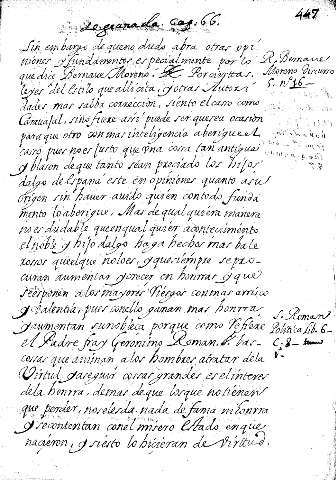 de granada. Cap. 66.
447
Sin embargo de que no dudo abra otras opi
niones y fundamentos especialmente por lo
que dice Bernave Moreno. Por ciertas
leyes del Estilo que alli cita, y otras Autori
dades mas salba correccion, siento el caso como
Carvajal, sino fuere assi puede ser que su ocasion
para que otro con mas inteligencia aberigue el
caso pues no es justo que una cosa tan antigua
y blason de que tanto sean preciado los hijos
dalgo de España este en opiniones quanto a su
origen sin haver avido quien con todo funda
mento lo aberigue. Mas de qualquiera manera
no es dudable que en qualquier acontecimiento
el noble y hijo dalgo haga hechos mas bale
rosos que el que no lo es, y que siempre se pro
curan aumentar y crecer en honrras y que
se esponen a los mayores riesgos con mas arrisco
y valentia, pues con ello ganan mas honrra
y aumentan su nobleza porque como refiere
el Padre fray Geronimo Roman. las
cosas que animan a los hombres a tratar de la
Virtud y a seguir cosas grandes es el interes
de la honrra, demas de que los que no tienen
que perder, no seles da nada de fama ni honrra
y se contentan con el misero estado en que
nacieron, y si esto lo hicieran de virtud.
R. Bernave
Moreno Discurso
5. nº 16
S. Roman
Politica lib. 6
C. 8